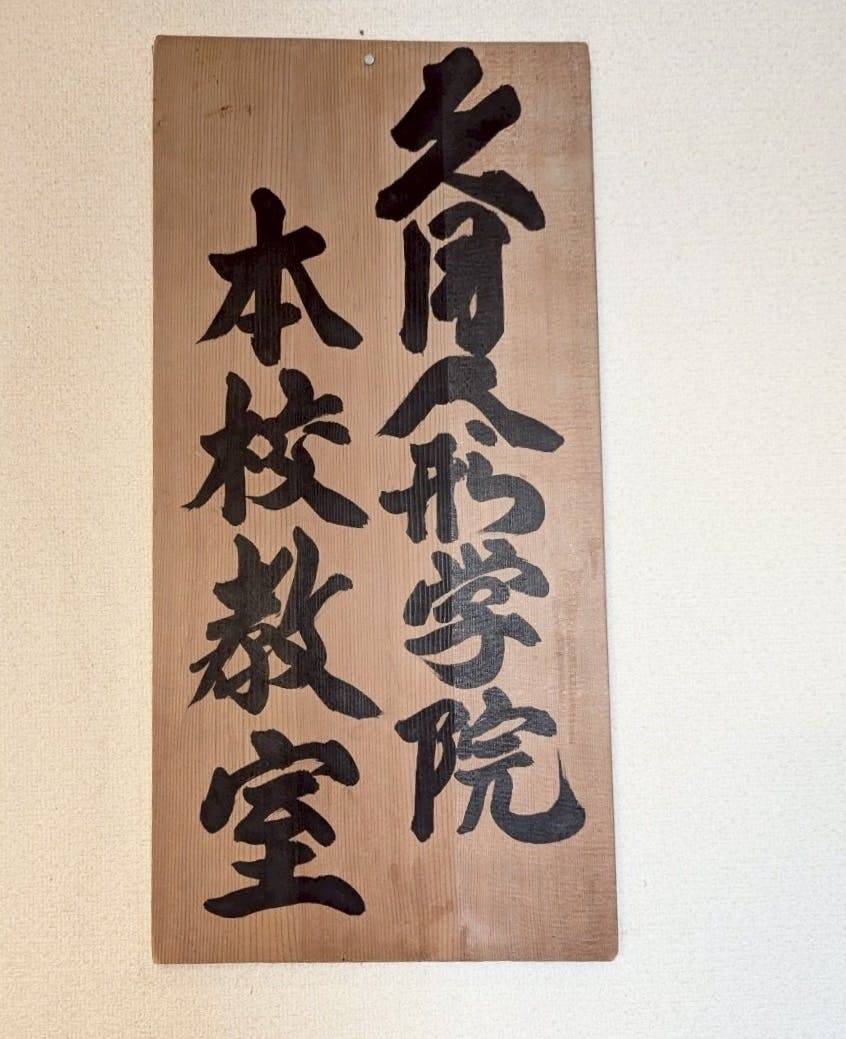 久月人形学院
本校教室